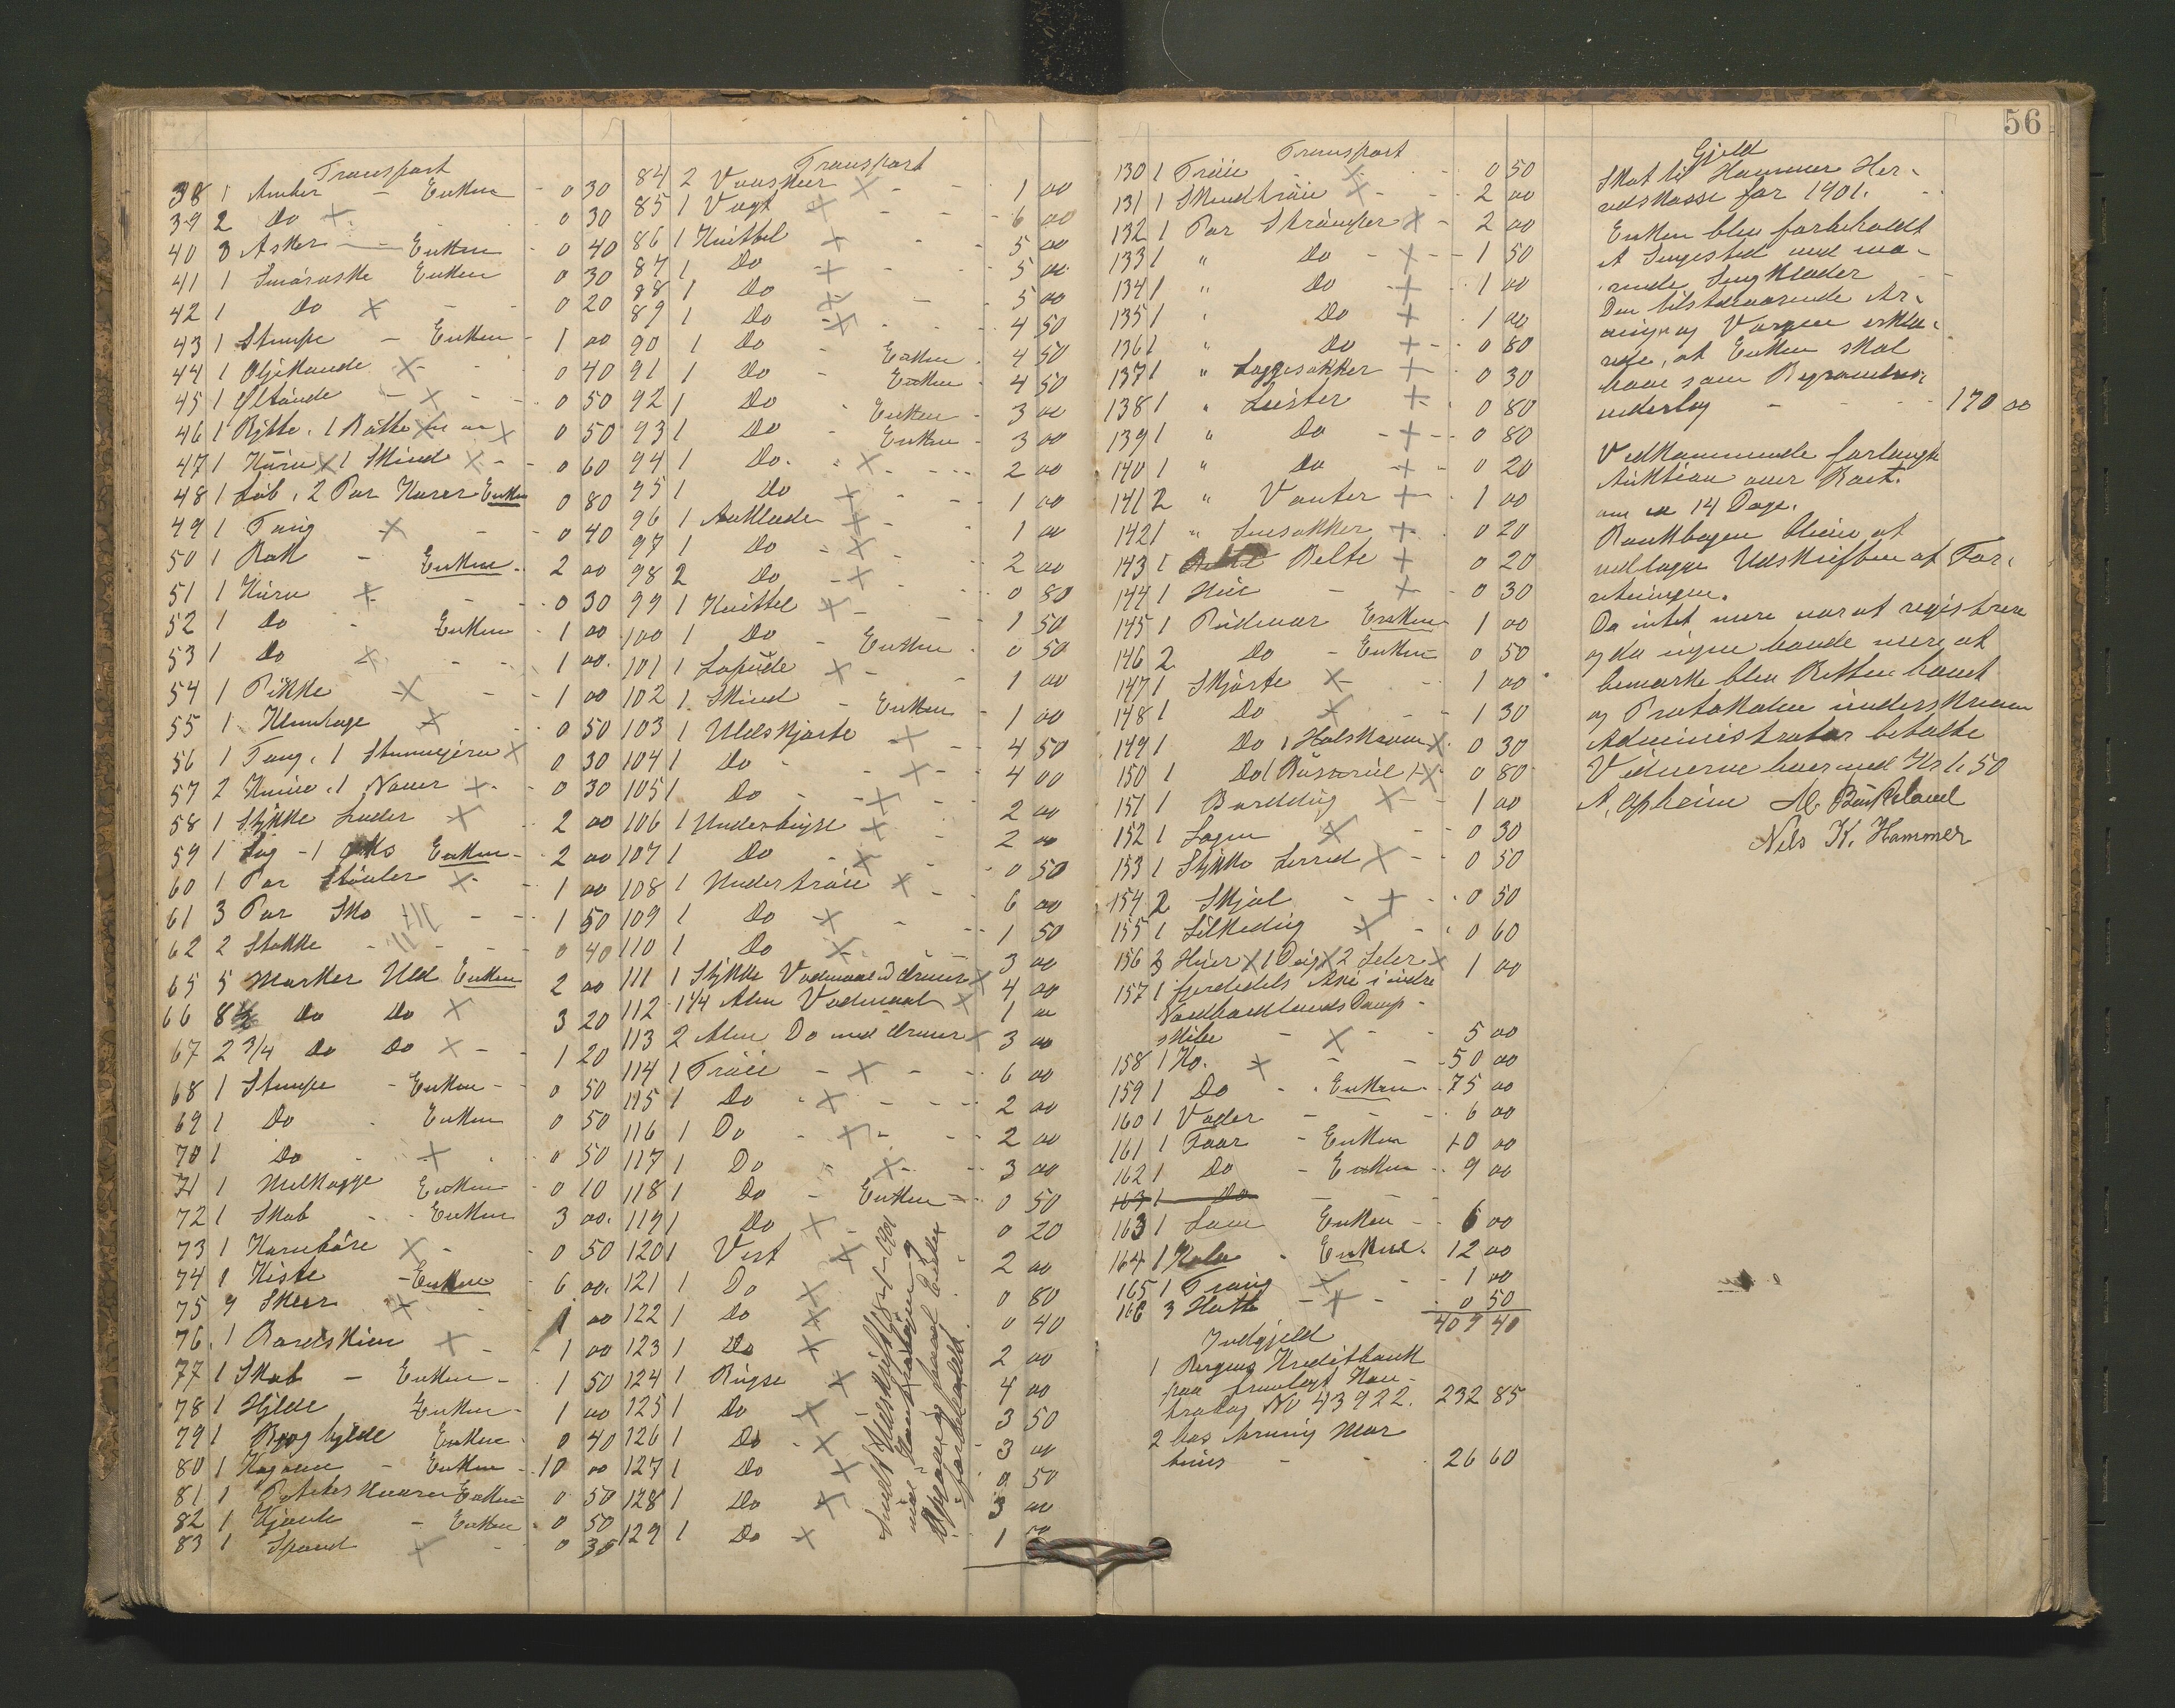 56
Transport
38 1 Amber - Enken - 0 30
39 2 Do 0 30
40 3 Asker - Enken - 0 40
41 1 Smøraske Enken 0 30
42 1 Do - 0 20
43 1 Stampe - Enken - 1 00
44 1 Oljekande - 0 40
45 1 Ølkande - 0 50
46 1 Bytte, 1 0 50
47 1 Kurv 1 Skind - 0 60
48 1 Løb, 2 Par Karer Enken 0 80
49 1 - 0 40
50 1 Rok - Enken - 2 00
51 1 Kurv - 0 30
52 1 Do - Enken - 1 00
53 1 Do - 1 00
54 1 Pikke - 1 00
55 1 0 50
56 1 Tang, 1 Stemmejern 0 30
57 2 Knive, 1 Naver - 0 30
58 1 Stykke Læder - 2 00
59 1 Sag - 1 Øks Enken - 2 00
60 1 Par Støvler - 1 00
61 3 Par Sko - 1 50
62 2 Stokke - 0 40
65 5 Marker Uld Enken 2 00
66 8½ Do Do 3 20
67 2 3/4 Do Do - 1 20
68 1 Stampe - Enken - 0 50
69 1 Do - Enken 0 50
70 1 Do - 0 50
71 1 Melkagge Enken - 0 10
72 1 Skab - Enken 3 00
73 1 Kornbøre - 0 50
74 1 Kiste - Enken - 6 00
75 9 Skeer - 1 00
76 1 Bordskive - 1 00
77 1 Skab - Enken - 1 50
78 1 Hylde Enken - 1 00
79 1 Boghylde Enken - 0 40
80 1 Kagovn - Enken - 10 00
81 1 Enken 0 50
82 1 Kjørle - Enken - 0 50
83 1 Spand - 0 30
Transport
84 2 Vadsker - 1 00
85 1 Vægt - 6 00
86 1 Knittel - 5 00
87 1 Do - 5 00
88 1 Do - 5 00
89 1 Do - 4 50
90 1 Do - Enken - 4 50
91 1 Do - Enken - 4 50
92 1 Do - Enken - 3 00
93 1 Do - Enken - 3 00
94 1 Do - 2 00
95 1 Do - 1 00
96 1 Aaklæde - 1 00
97 1 Do - 2 00
98 2 Do - 0 80
99 1 Knittel - 1 50
100 1 Do - Enken - 0 50
101 1 Lapude - 1 00
102 1 Skind - Enken - 1 00
103 1 Uldskjorte - 4 50
104 1 Do - 4 00
105 1 Do - 2 00
106 1 Underbuxe - 2 00
107 1 Do - 0 50
108 1 Undertrøie - 6 00
109 1 Do - 1 50
110 1 Do - 3 00
111 1 Stykke Vadmaal 4 00
112 1 1/4 Alen Vadmaal 1 00
113 2 Alen Do 3 00
114 1 Trøie - 6 00
115 1 Do - 2 00
116 1 Do - 2 00
117 1 Do - 3 00
118 1 Do - Enken - 0 50
119 1 Do - 0 20
120 1 Vest - 2 00
121 1 Do - 0 80
122 1 Do - 0 40
123 1 Do - 2 00
124 1 Buxe 4 00
125 1 Do 3 50
126 1 Do - 3 00
127 1 Do 0 50
128 1 Do 3 00
129 1 Do 1 50
Transport
130 1 Trøie - 0 50
131 1 Skindtrøie - 2 00
132 1 Par Strømper - 2 00
133 1 " Do - 1 50
134 1 " Do - 1 00
135 1 " Do - 1 00
136 1 " Do - 0 80
137 1 " Laggesokker 0 30
138 1 " Leister - 0 80
139 1 " Do - 0 80
140 1 " Do - 0 20
141 2 " Vanter - 1 00
142 1 " - 0 20
143 1 Belte 0 20
144 1 Hue - 0 30
145 1 Pudevar Enken - 1 00
146 2 Do - Enken 0 50
147 1 Skjorte - 1 00
148 1 Do - 1 30
149 1 Do 1 0 30
150 1 Do 1 0 80
151 1 Borddug - 1 00
152 1 Lagen - 0 30
153 1 Stykke Lerred - 0 50
154 2 Skjøl - 0 50
155 1 Silkedug - 0 60
156 3 Huer 1 2 Seler 1 00
157 1 fjerdedels Aksi i indre
Nordhordlands Damp-
skibe - 5 00
158 1 Ko. - 50 00
159 1 Do - Enken - 75 00
160 1 Væder - 6 00
161 1 Faar - Enken 10 00
162 1 Do - Enken - 9 00
163 1 Do
163 1 Lam Enken - 6 00
164 1 Kalv - Enken - 12 00
165 1 - 1 00
166 3 Hatte - 0 50
409 40
Indgjeld
1 Bergens Kreditbank
paa fremlagt Kon-
trabog No 43922. 232 85
2 hos Mar
tinus - 26 60
Gjeld
Skat til Hammer Her-
redskasse for 1901. -
Enken blev forbeholdt
et Sengested med va-
rende Sengklæder -
Den tilstedeværende Ar-
ving og Værgen erklæ-
rede, at Enken skal
have som Begravelses-
underlag - 170 00
Vedkommende forlangte
Auktion over Boet.
om 14 Dage.
Bankbogen bliver at
vedlægge Udskriften af For-
retningen.
Da intet mere var at registrere
og da ingen havde mere at
bemærke blev Retten hævet
og Protokollen underskreven
Administrator betalte
Vidnerne hver med Kr 1.50
A. Opheim M. Birkeland
Nils K. Hammer